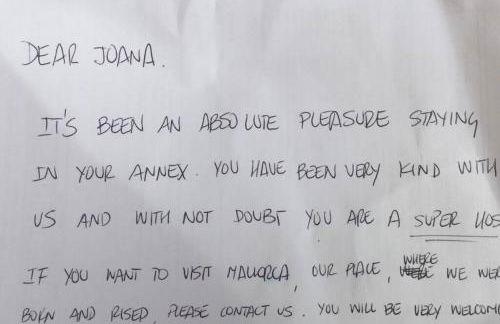 DEAR JOANA.
IT'S BEEN AN ABSOLUTE PLEASURE STAYING
IN YOUR ANNEX. YOU HAVE BEEN VERY KIND WITH
US AND WITH NOT DOUBT YOU ARE A SUPER HOS
IF YOU WANT TO VISIT MALLORCA, OUR PLACE, WHERE WE WER
BORN AND RISED, PLEASE CONTACT US. YOU WILL BE VERY WELCOM